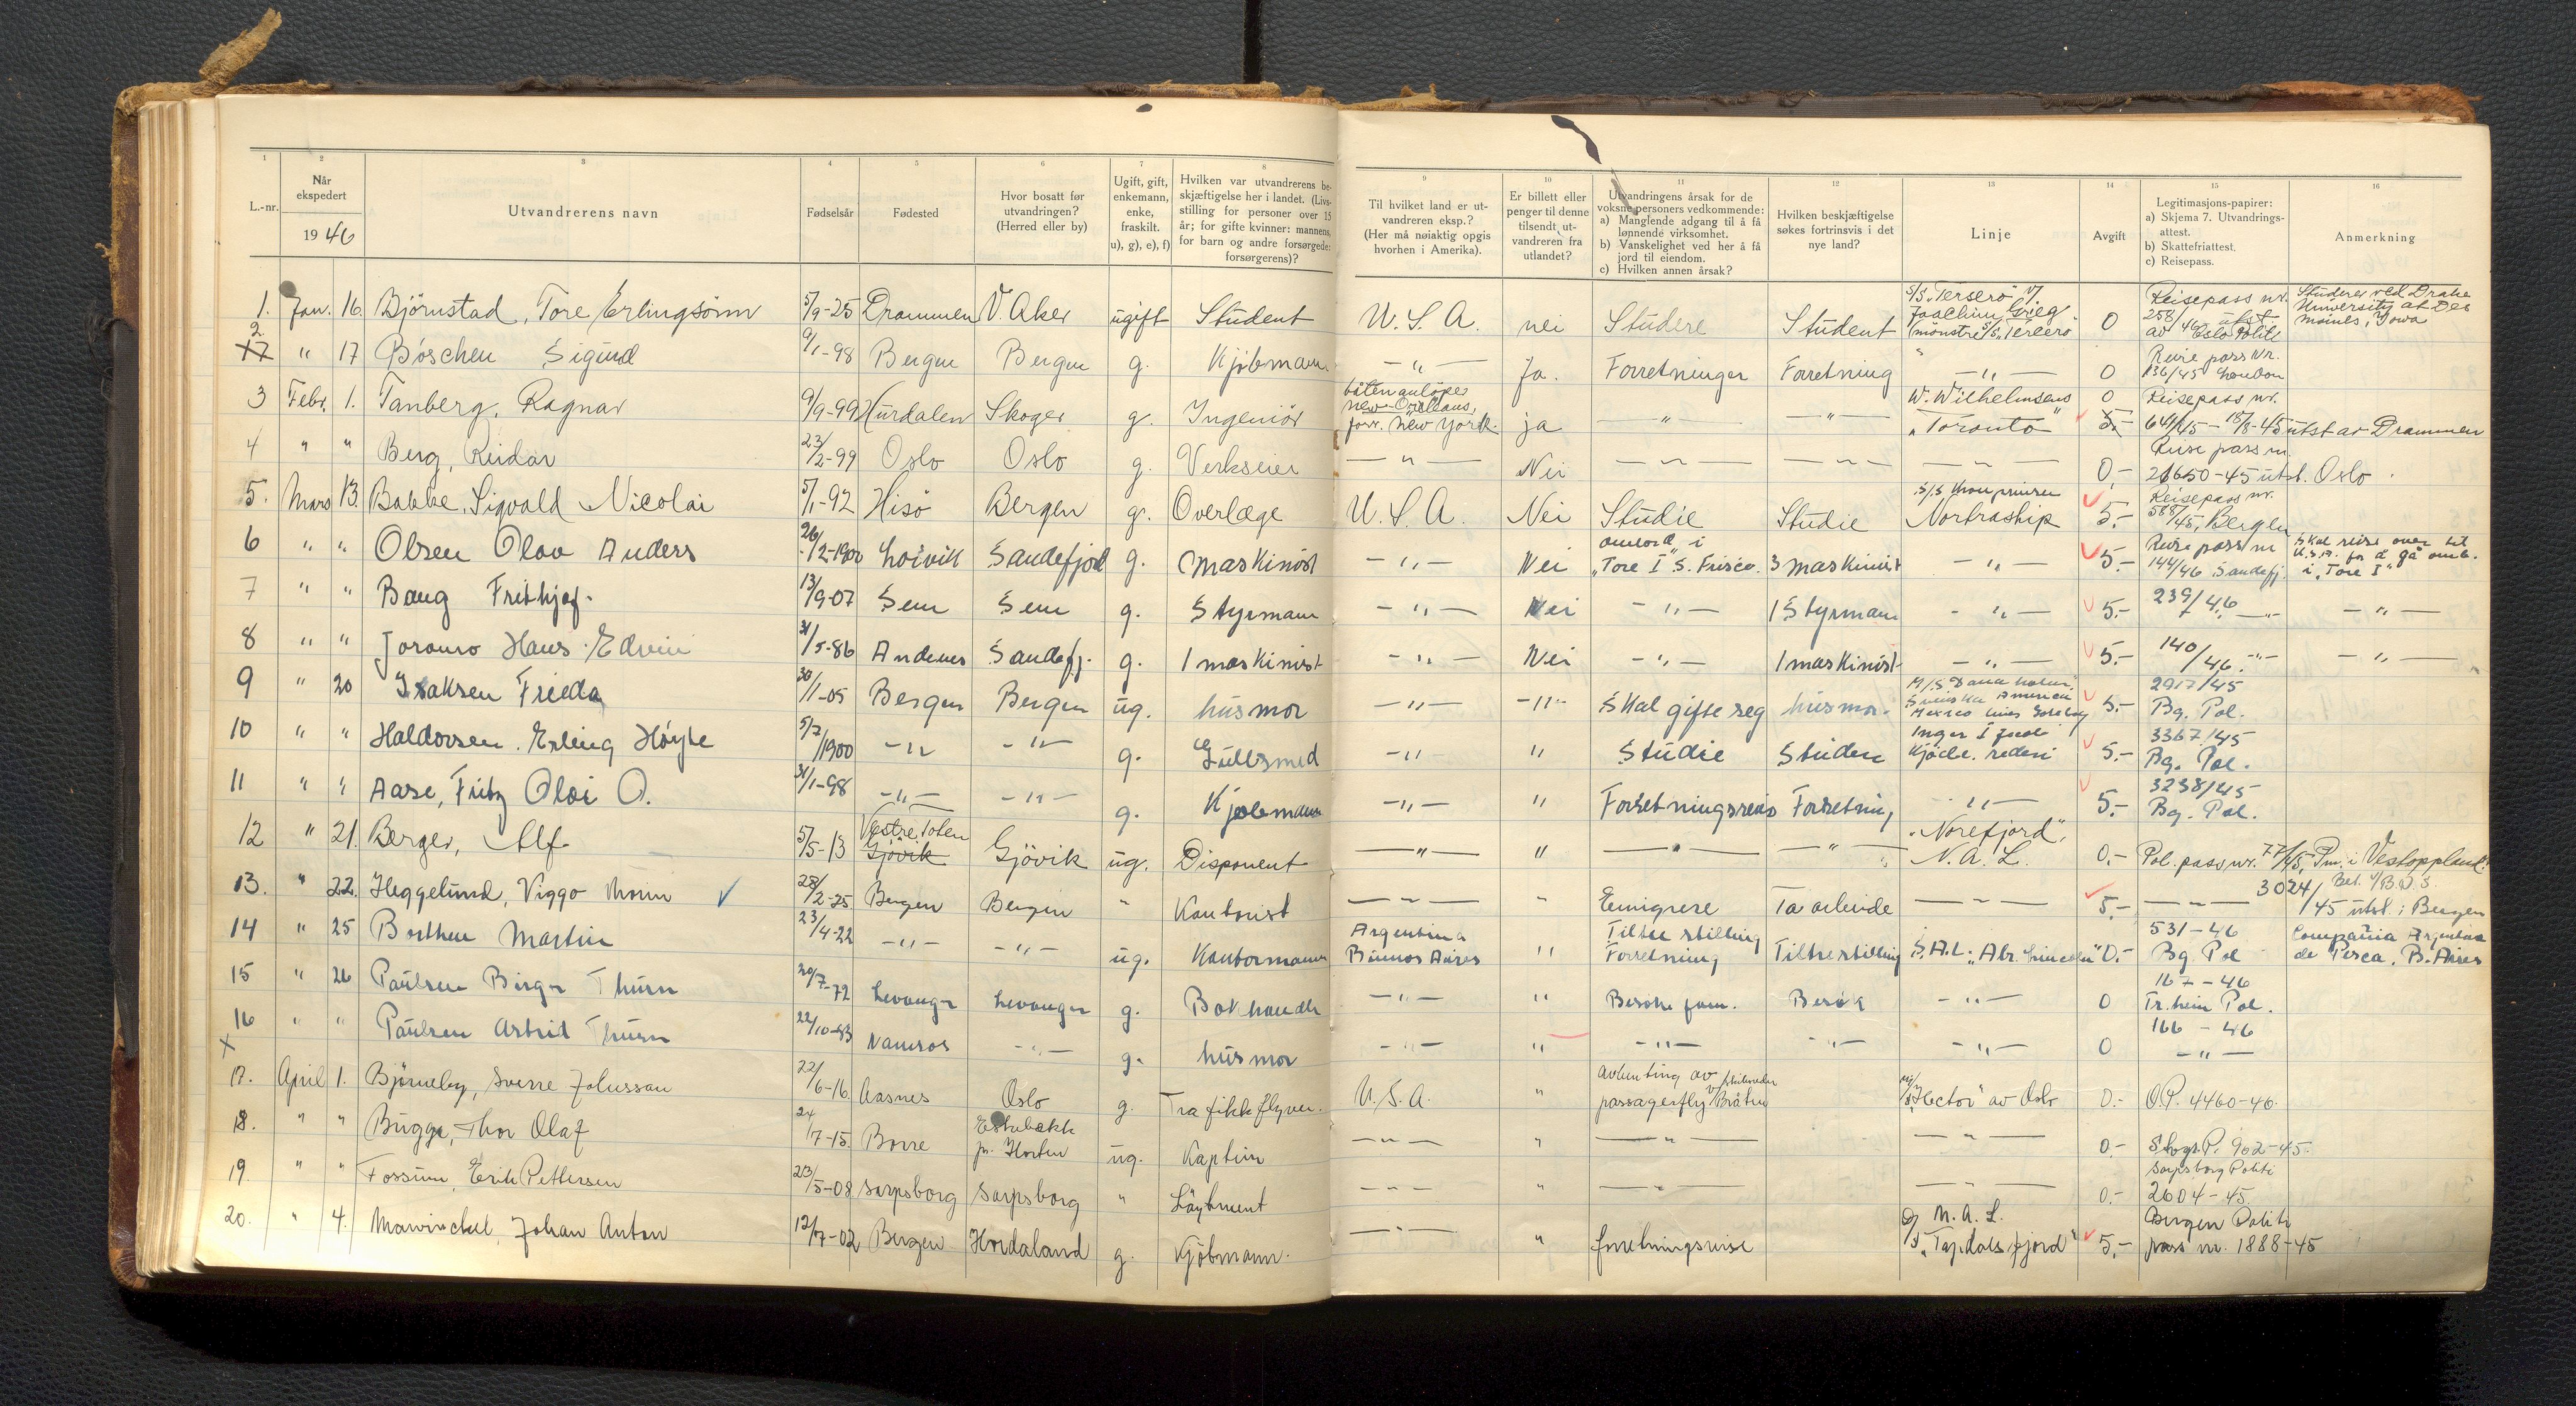 1 2 3 4 5 6 7 8 9 10 11 12 13 14 15 16
L.-nr.
Når ekspedert
1946
Utvandrerens navn
Fødselsår
Fødested
Hvor bosatt før utvandringen? (Herred eller by)
Ugift, gift, enkemann, enke, fraskilt. u), g), e), f)
Hvilken var utvandrerens beskjæftigelse her i landet. (Livsstilling for personer over 15 år; for gifte kvinner: mannens, for barn og andre forsørgede: forsørgerens)?
Til hvilket land er utvandreren eksp.? (Her må nøiaktig opgis hvorhen i Amerika).
Er billett eller penger til denne tilsendt utvandreren fra utlandet?
Utvandringens årsak for de voksne personers vedkommende:
a) Manglende adgang til å få lønnende virksomhet.
b) Vanskelighet ved her å få jord til eiendom.
c) Hvilken annen årsak?
Hvilken beskjæftigelse søkes fortrinsvis i det nye land?
Linje
Avgift
Legitimasjons-papirer:
a) Skjema 7. Utvandrings-attest.
b) Skattefriattest.
c) Reisepass.
Anmerkning
1. Jan. 16. Bjørnstad, Tore Erlingsönn 5/9-25 Drammen V. Aker ugift Student U.S.A. nei Studere Student S/S. "Tersero" v/ Joachim Grieg mönstre S/S. "Tersero 0 Reisepass nr. 258/46 utst av Oslo Politi Studerer ved Drake University at Des Moines, Iowa
2. 17 " 17 Böschen Sigurd 9/1-98 Bergen Bergen g. Kjöbmann — " — Ja. Forretninger Forretning — " — 0 Reise pass Nr. 136/45 London
3 Febr. 1. Tanberg, Ragnar 9/9-99 Hurdalen Skoger g. Ingeniör båten anlöper New-Orleans, forr. New York. ja — " — — " — W. Wilhelmsens "Toronto" 0 5.- Reisepass nr. 641/45 - 18/8-45 utst av Drammen
4 " " Berg, Reidar 23/2-99 Oslo Oslo g. Verkseier — " — Nei — " — — " — — " — 0,- Reise pass nr. 21650-45 utst. Oslo.
5. Mars 13. Babbe, Sigvald Nicolai 5/1-92 Hisö Bergen g. Overlæge U.S.A. Nei Studie Studie S/S Kronprinsen Nortraship 5.- Reisepass nr. 588/45, Bergen
6 " " Olsen Olav Anders 26/2-1900 Sandefjord g. Maskinist — " — Nei ombord i "Tore I" S. Frisco. 3 maskinist — " — 5.- Reise pass nr 144/46 Sandefj. Skal reise over til U.S.A. for å gå omb. i "Tore I"
7 " " Baug Frithjof. 13/9-07 Sem Sem g. Styrmann — " — Nei — " — 1 Styrmann — " — 5.- 239/46 — " — — " —
8 " " Hans Edvin 31/5-86 Andenes Sandefj. g. 1 maskinist — " — Nei — " — 1 maskinist — " — 5.- 140/46. — " — — " —
9 " 20 Isaksen Frieda 30/1-05 Bergen Bergen ug. husmor — " — — " — Skal gifte seg husmor. Svenska America Mexico Linie Göteborg 5.- 2917/45 Bg. Pol.
10 " " Haldorsen. Erling Höyte 5/7/1900 — " — — " — g. Gullsmed — " — " Studie Studere Kjöde. rederi 5.- 3367/45 Bg. Pol.
11 " " Aase, Fritz Olai O. 31/1-98 — " — — " — g. Kjöbmann — " — " Forretningsreise Forretning — " — 5.- 3238/45 Bg. Pol.
12 " 21. Berger, Alf. 5/5-13 Vestre Toten Gjövik Gjövik ug. Disponent — " — " — " — — " — "Norefjord", N.A.L. 0.- Pol. pass nr. 77/45, Pm. i Vestoppland.
13. " 22. Heggelund, Viggo 28/2-25 Bergen Bergen " Kontorist — " — " Emigrere Ta arbeide — " — 5.- — " — 3024/45 utst. i Bergen Bet. v/B.D.S.
14 " 25 Borthen Martin 23/4-22 — " — — " — ug. Kontormann Argentina Buenos Aires " Tiltre stilling Forretning Tiltre stilling S.A.L. "Abr. Lincoln" 0.- 531-46 Bg Pol Compañia Argentina de Pesca, B. Aires
15 " 26 Paulsen Birger Thurn 20/7-72 Levanger Levanger g. Bokhandler — " — " Besöke fam. Besök — " — 0 167-46 Tr.heim Pol.
16 " " Paulsen Astrid Thurn 22/10-83 Namsos — " — g. husmor — " — " — " — — " — — " — 0 166-46 — " —
X
17. April 1. Björneby, Sverre Johnssøn 22/6-16 Aasnes Oslo g. Trafikkflyver. U.S.A. " avhenting av passagerfly v/ skibsreder Bråten "Hector" av Oslo 0.- O.P. 4460-46.
18. " " Bugge, Thor Olaf 24/7-15. Borre pr. Horten ug. Kaptein — " — " — " — — " — 0.- 902-45.
19 " " Fossum, Erik Pettersen 23/5-08 Sarpsborg Sarpsborg " Löytnent — " — " — " — — " — 0.- Sarpsborg Politi 2604-45
20. " 4. Mowinckel, Johan Anton 12/7-02 Bergen Hordaland g. Kjöbmann. — " — " forretningsreise N.A.L. "Topdalsfjord" 5.- Bergen Politi pass nr. 1888-45